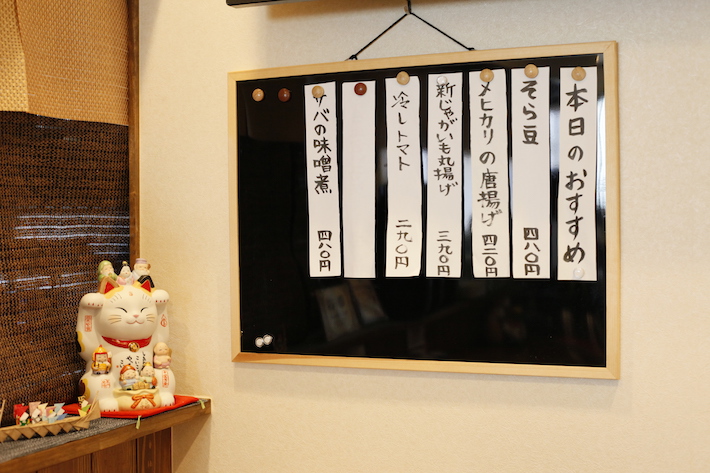 本日のおすすめ
そら豆 四八〇円
メヒカリの唐揚げ 四二〇円
新じゃがいも丸揚げ 三九〇円
冷しトマト 二九〇円
サバの味噌煮 四八〇円